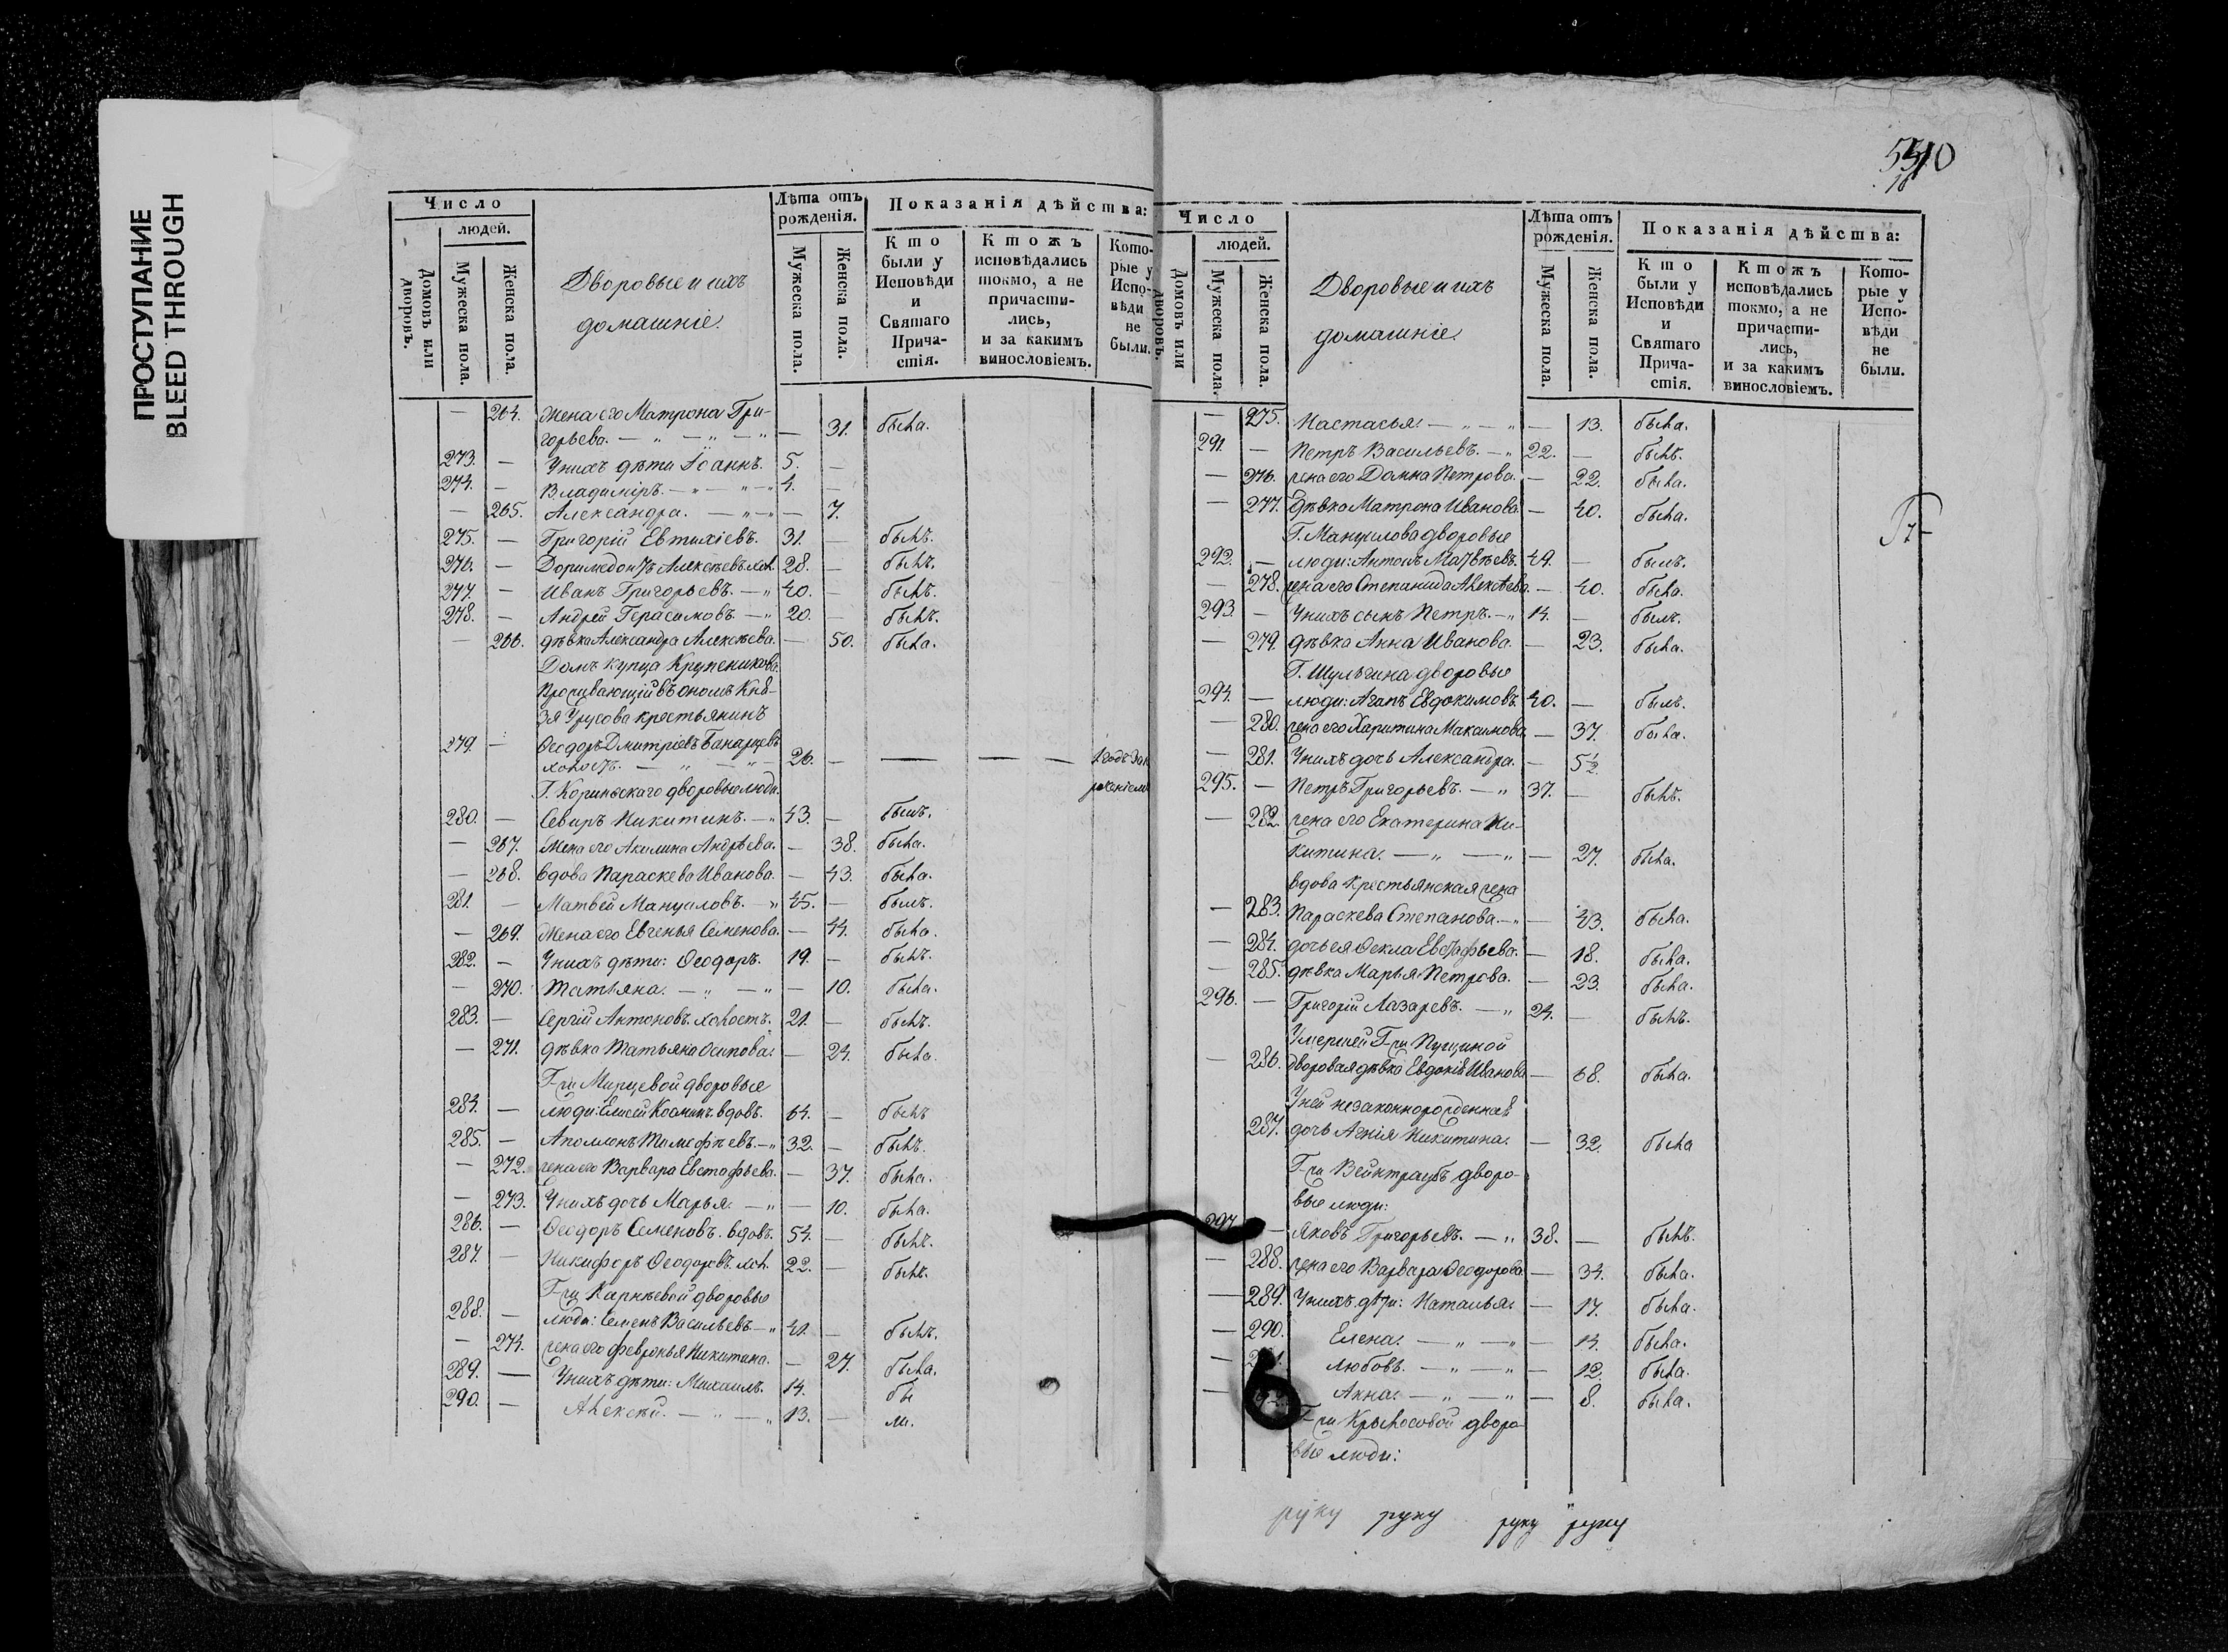 ПРОСТУПАНИЕ
BLEED THROUGH
Число
людей.
Домовъ или дворовъ.
Мужеска пола.
Женска пола.
Дворовые и ихъ
домашніе.
Лѣта отъ
рожденія.
Мужеска пола.
Женска пола.
Показанія дѣйства:
Кто были у Исповѣди и Святаго Прича-стія.
Ктожъ исповѣдались токмо, а не причасти-лись, и за какимъ винословіемъ.
Кото-рые у Испо-вѣди не были.
— 264. Жена его Матрона Гри-
горьева. — „ — „ — „ — 31. была.
273. — У нихъ дѣти Іоаннъ. 5. —
274. — Владиміръ. — „ — „ — „ 4. —
— 265. Александра. — „ — „ — 7.
275. — Григорій Евтихіевъ. 31. — былъ.
276. — Доримедонтъ Алексѣевъ. хол. 28. — былъ.
277. — Иванъ Григорьевъ. — „ 40. — былъ.
278. — Андрей Герасимовъ. — „ 20. — былъ.
— 266. дѣвка Александра Алексѣева. — 50. была.
Домъ купца Крупеникова.
Проживающій въ ономъ Кня-
зя Урусова крестьянинъ
279. — Ѳеодоръ Дмитріевъ
холостъ. — „ — „ — 26. — — — —
Г. Коринскаго дворовые люди.
280. — Севиръ Никитинъ. — „ 43. — былъ.
— 267. Жена его Акилина Андрѣева. — 38. была.
— 268. вдова Параскева Иванова. — 43. была.
281. — Матвей Мануиловъ. — „ 45. — былъ.
— 269. Жена его Евгенья Семенова. — 44. была.
282. — У нихъ дѣти: Ѳеодоръ. 19. — былъ.
— 270. Татьяна. — „ — „ — 10. была.
283. — Сергій Антоновъ. холостъ. 21. — былъ.
— 271. дѣвка Татьяна Осипова. — 24. была.
Г-жи Мирцевой дворовые
284. — люди: Елисей Козминъ. вдовъ. 64. — былъ
285. — Аполлонъ Тимофѣевъ. — „ 32. — былъ.
— 272. жена его Варвара Евстафьева. — 37. была.
— 273. У нихъ дочь Марья. — „ — 10. была.
286. — Ѳеодоръ Семеновъ. вдовъ. 54. — былъ.
287. — Никифоръ Ѳеодоровъ. хол. 22. — былъ.
Г-жи Карнѣевой дворовые
288. — люди: Семенъ Васильевъ. — „ 41. — былъ.
— 274. жена его Февронья Никитина. — 27. была.
289. — У нихъ дѣти: Михаилъ. 14. бы
290. — Алексѣй. — „ — „ 13. — ли.
5510
Число
людей.
Домовъ или дворовъ.
Мужеска пола.
Женска пола.
Дворовые и ихъ
домашніе.
Лѣта отъ
рожденія.
Мужеска пола.
Женска пола.
Показанія дѣйства:
Кто были у Исповѣди и Святаго Прича-стія.
Ктожъ исповѣдались токмо, а не причасти-лись, и за какимъ винословіемъ.
Кото-рые у Испо-вѣди не были.
— 275. Настасья. — „ — „ — 13. была.
291. — Петръ Васильевъ. — „ 22. — былъ.
— 276. жена его Домна Петрова. — 22. была.
— 277. дѣвка Матрона Иванова. — 40. была.
Г. Мануилова дворовые
292. — люди: Антонъ Матвѣевъ. 49. — былъ.
— 278. жена его Степанида Алексѣева. — 40. была.
293. — У нихъ сынъ Петръ. — „ 14. — былъ.
— 279. дѣвка Анна Иванова. — 23. была.
Г. Шульгина дворовые
294. — люди: Агапъ Евдокимовъ. 40. — былъ.
— 280. жена его Харитина Максимова. — 37. была.
— 281. У нихъ дочь Александра. — 5½.
295. — Петръ Григорьевъ. — „ 37. — былъ.
— 282. жена его Екатерина Ни-
китина. — „ — „ — 27. была.
вдова крестьянская жена
— 283. Параскева Степанова. — „ — 43. была.
— 284. дочь ея Ѳекла Евстафьева. — 18. была.
— 285. дѣвка Марья Петрова. — 23. была.
296. — Григорій Лазаревъ. — „ 24. — былъ.
Умершей Г-жи Пущиной
— 286. дворовая дѣвка Евдокія Иванова — 68. была.
У ней незаконнорожденная
287. дочь Агнія Никитина. — 32. была
Г-жи Вейнтраубъ дворо-
вые люди:
297. — Яковъ Григорьевъ. — „ 38. — былъ.
— 288. жена его Варвара Ѳеодорова. — 34. была.
— 289. У нихъ дѣти: Наталья. — 17. была.
— 290. Елена. — „ — „ — 14. была.
— Любовь. — „ — „ — 12. была.
— Анна. — „ — „ — 8. была.
Г-жи Крылосовой дворо-
вые люди:
руку руку руку руку